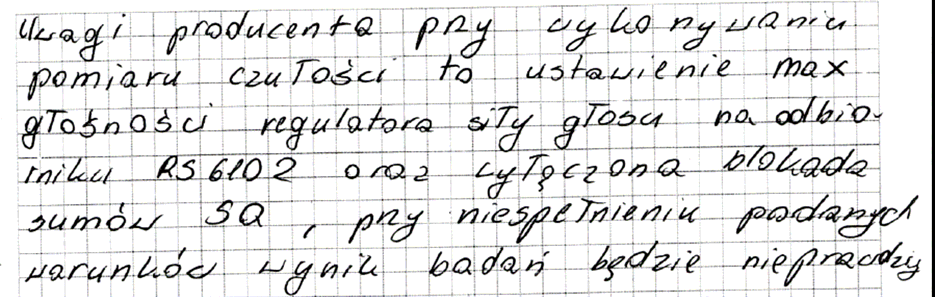 Uwagi producenta przy wykonywaniu
pomiaru czułości to ustawienie max
głośności regulatora siły głosu na odbio-
rniku RS 6102 oraz wyłączona blokada
szumów SQ, przy niespełnieniu podanych
warunków wynik badań będzie nieprawdziy